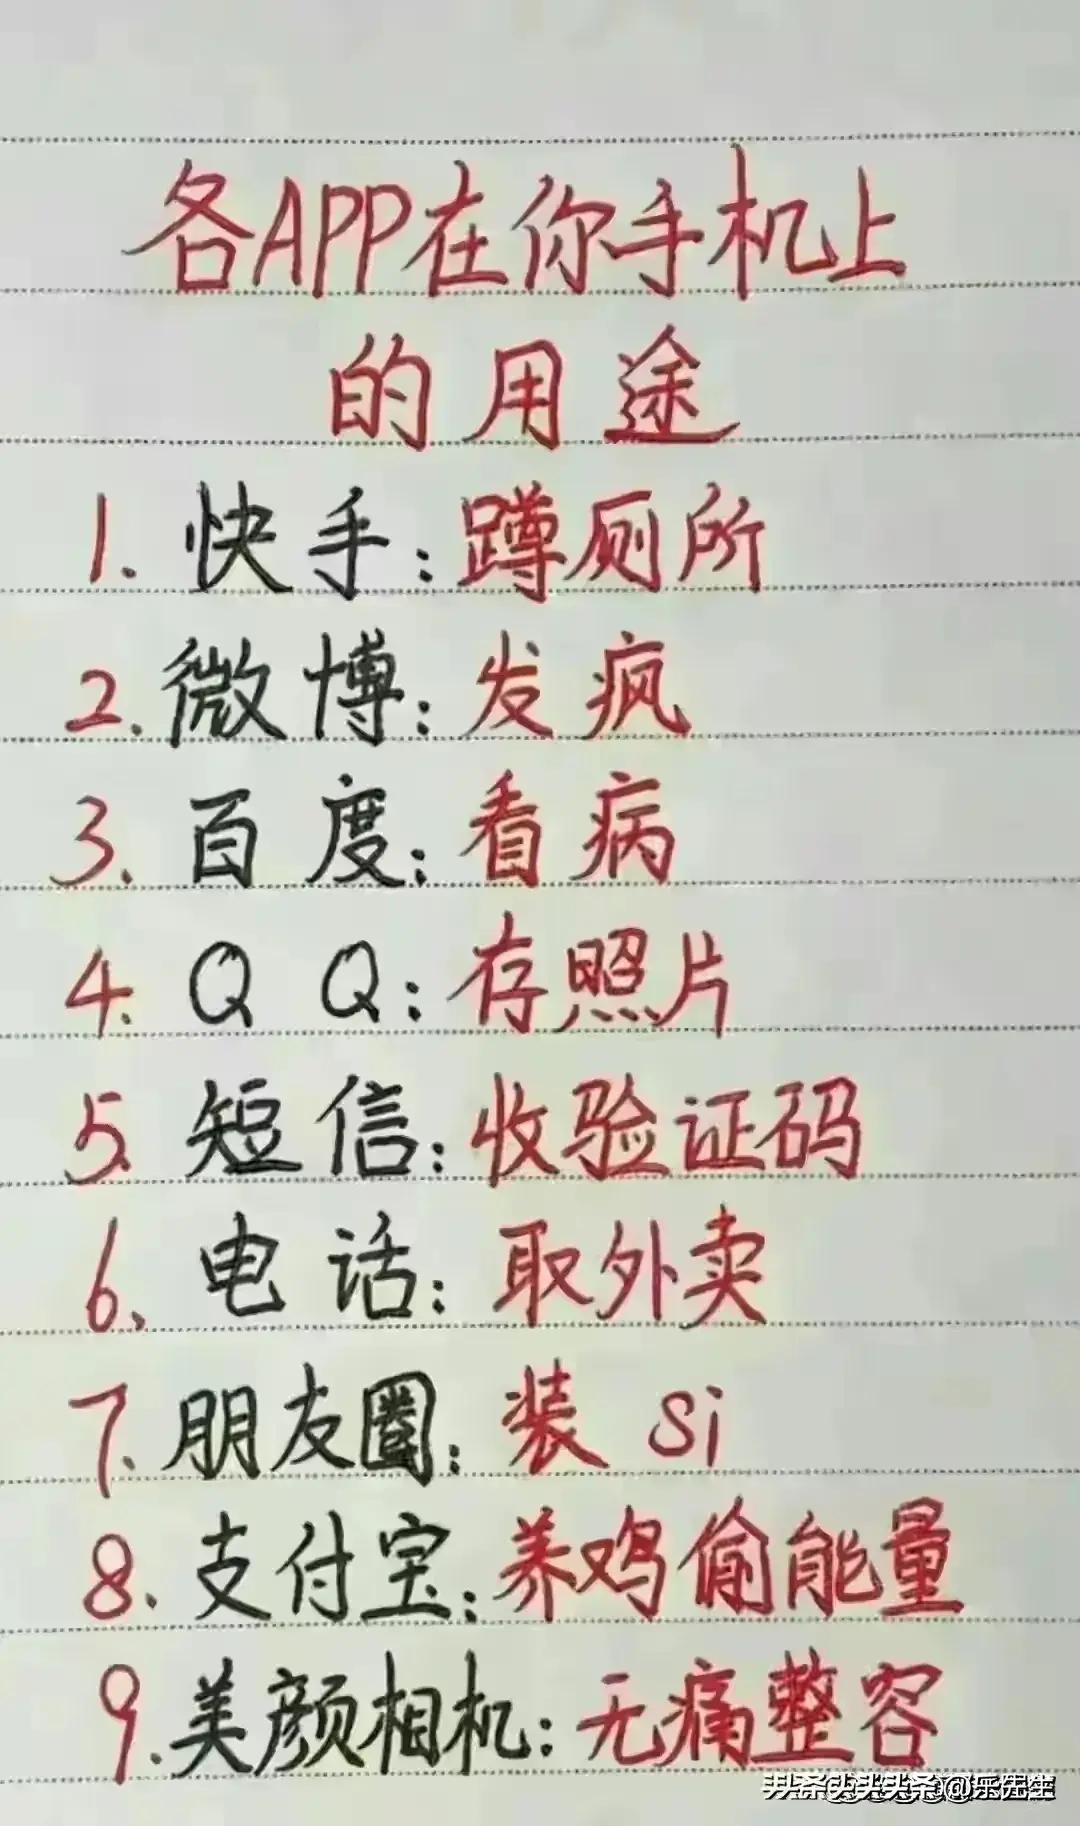 各APP在你手机上
的用途
1. 快手：蹲厕所
2. 微博：发疯
3. 百度：看病
4. QQ：存照片
5. 短信：收验证码
6. 电话：取外卖
7. 朋友圈：装 si
8. 支付宝：养鸡偷能量
9. 美颜相机：无痛整容
头条 @乐先生